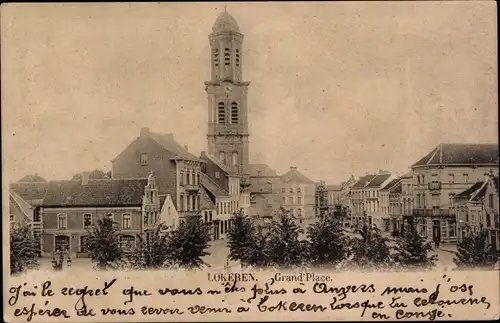 LOKEREN. Grand'Place.
J'ai le regret que vous n'êtes plus à Anvers mais j'ose
espérer de vous revoir venir à Lokeren lorsque tu retourne,
en congé.